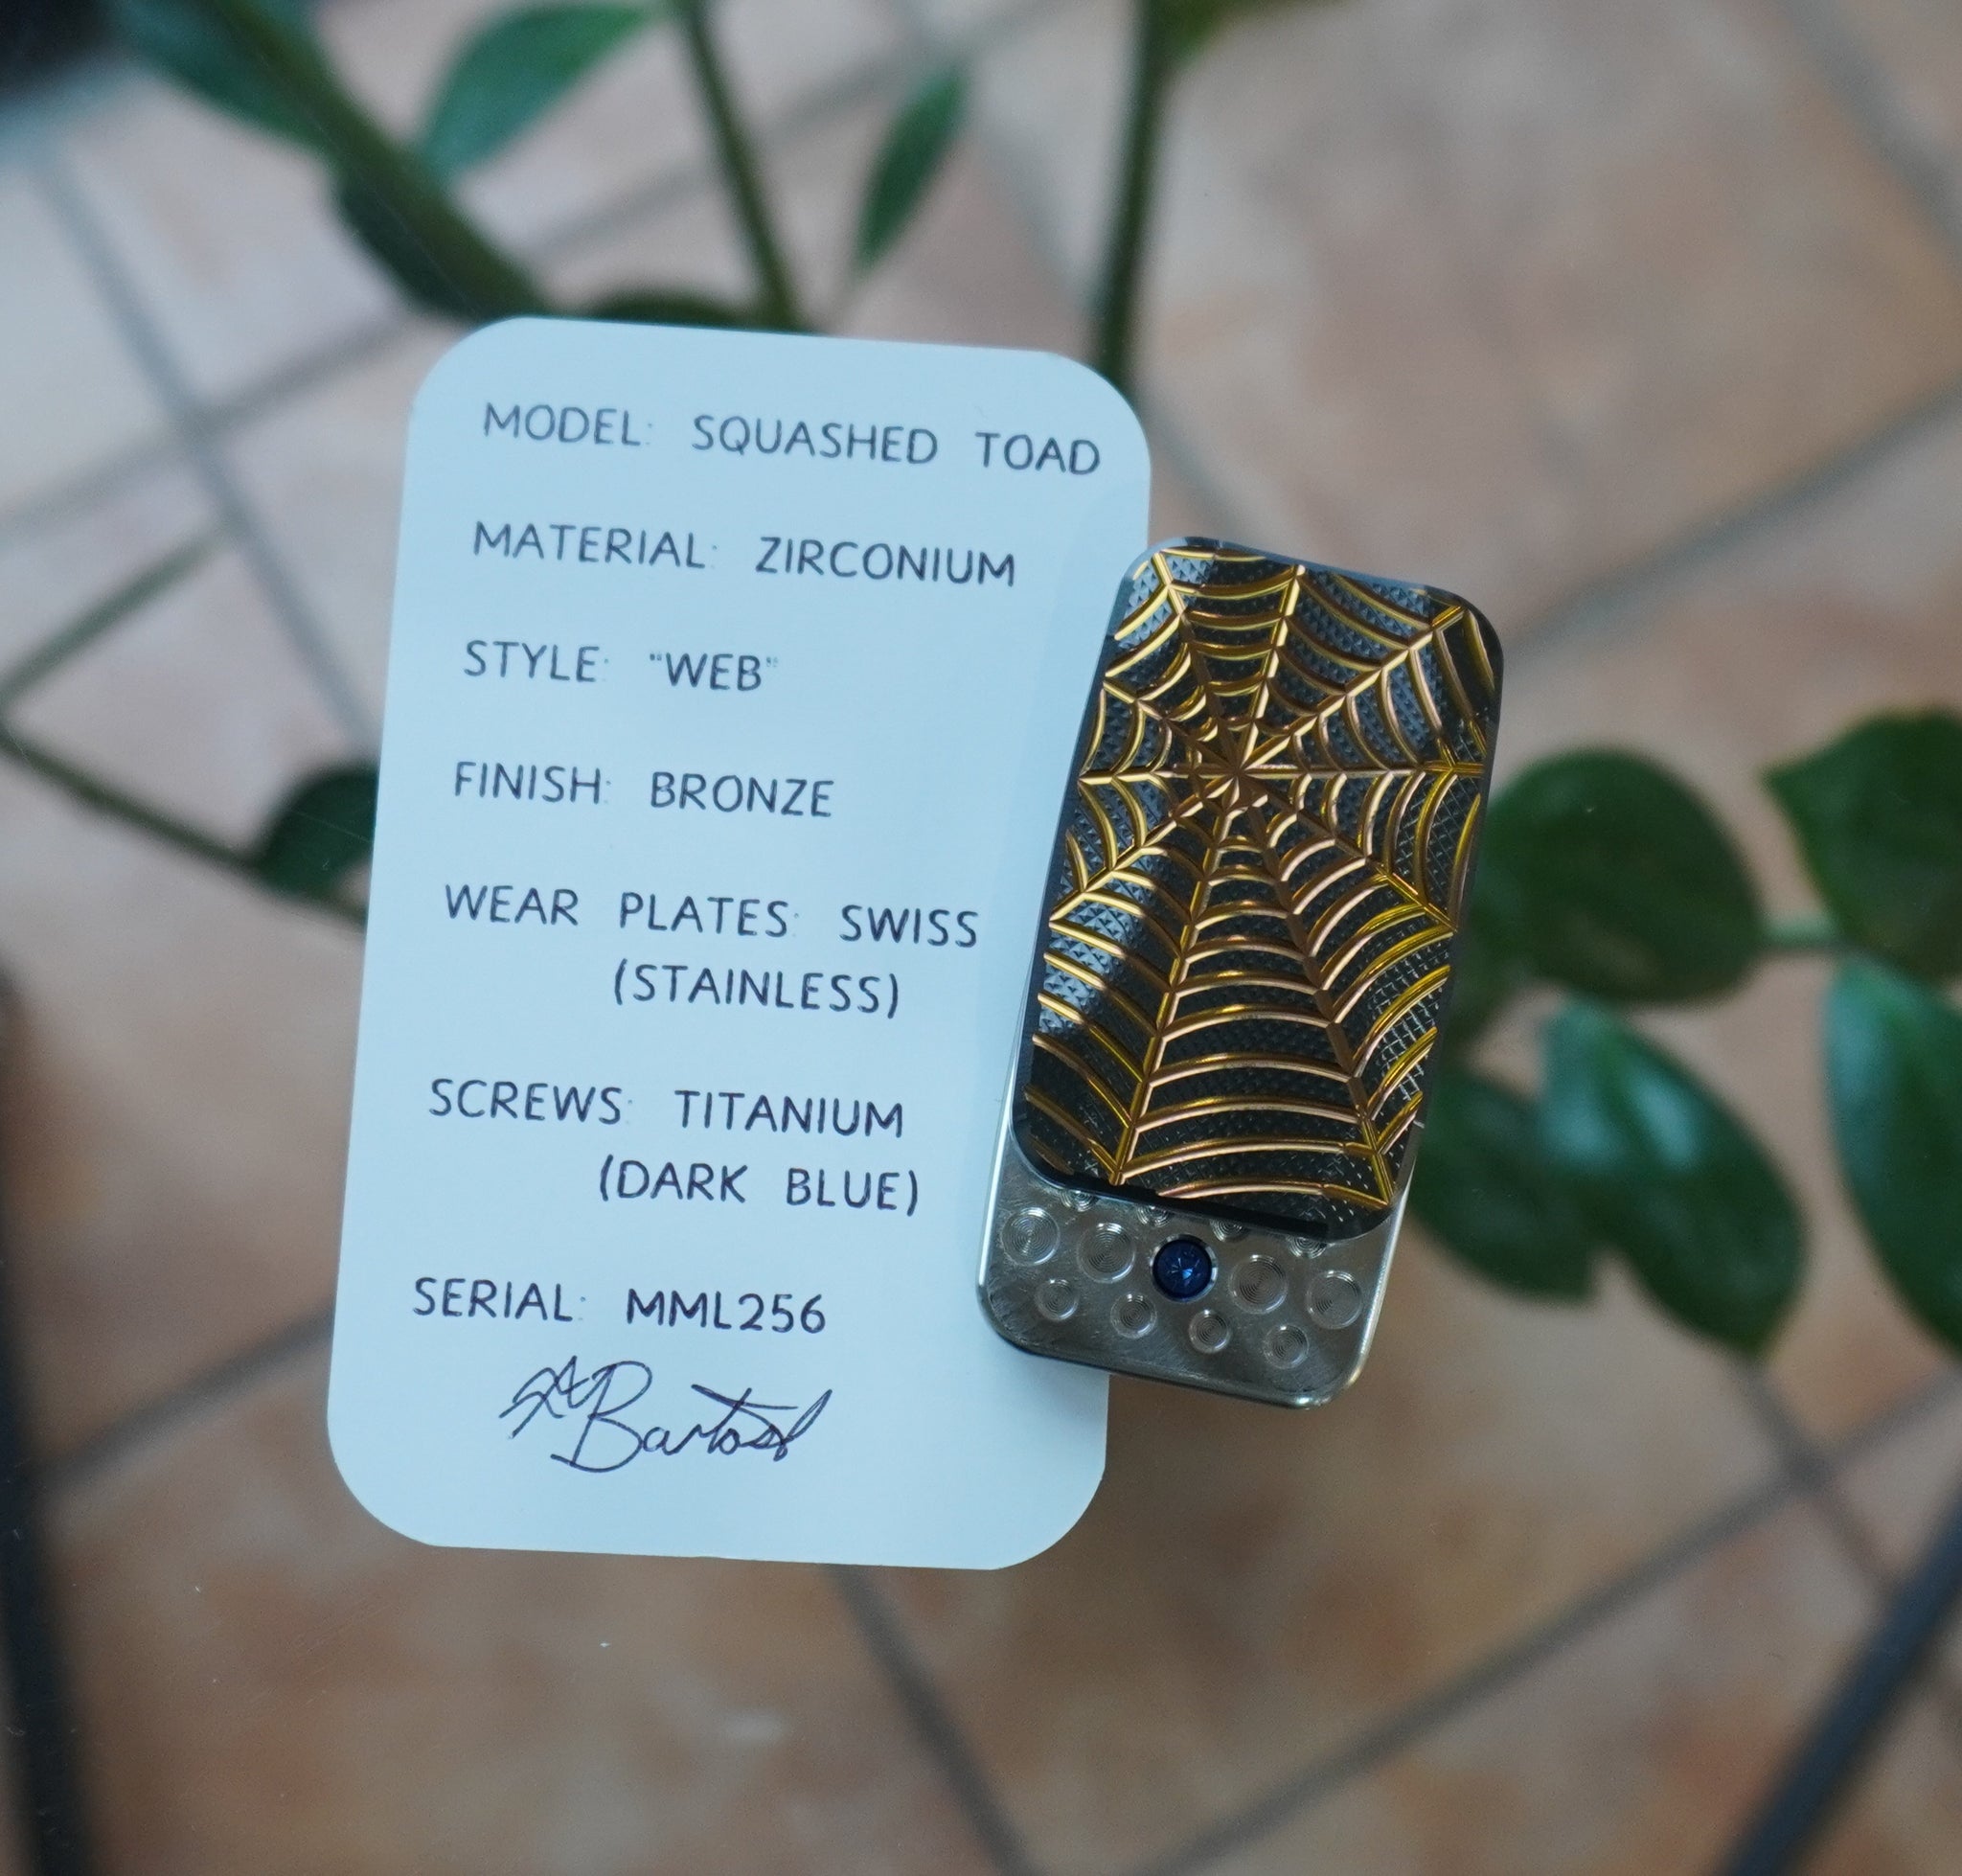 MODEL: SQUASHED TOAD
MATERIAL: ZIRCONIUM
STYLE: "WEB"
FINISH: BRONZE
WEAR PLATES: SWISS
(STAINLESS)
SCREWS: TITANIUM
(DARK BLUE)
SERIAL: MML256